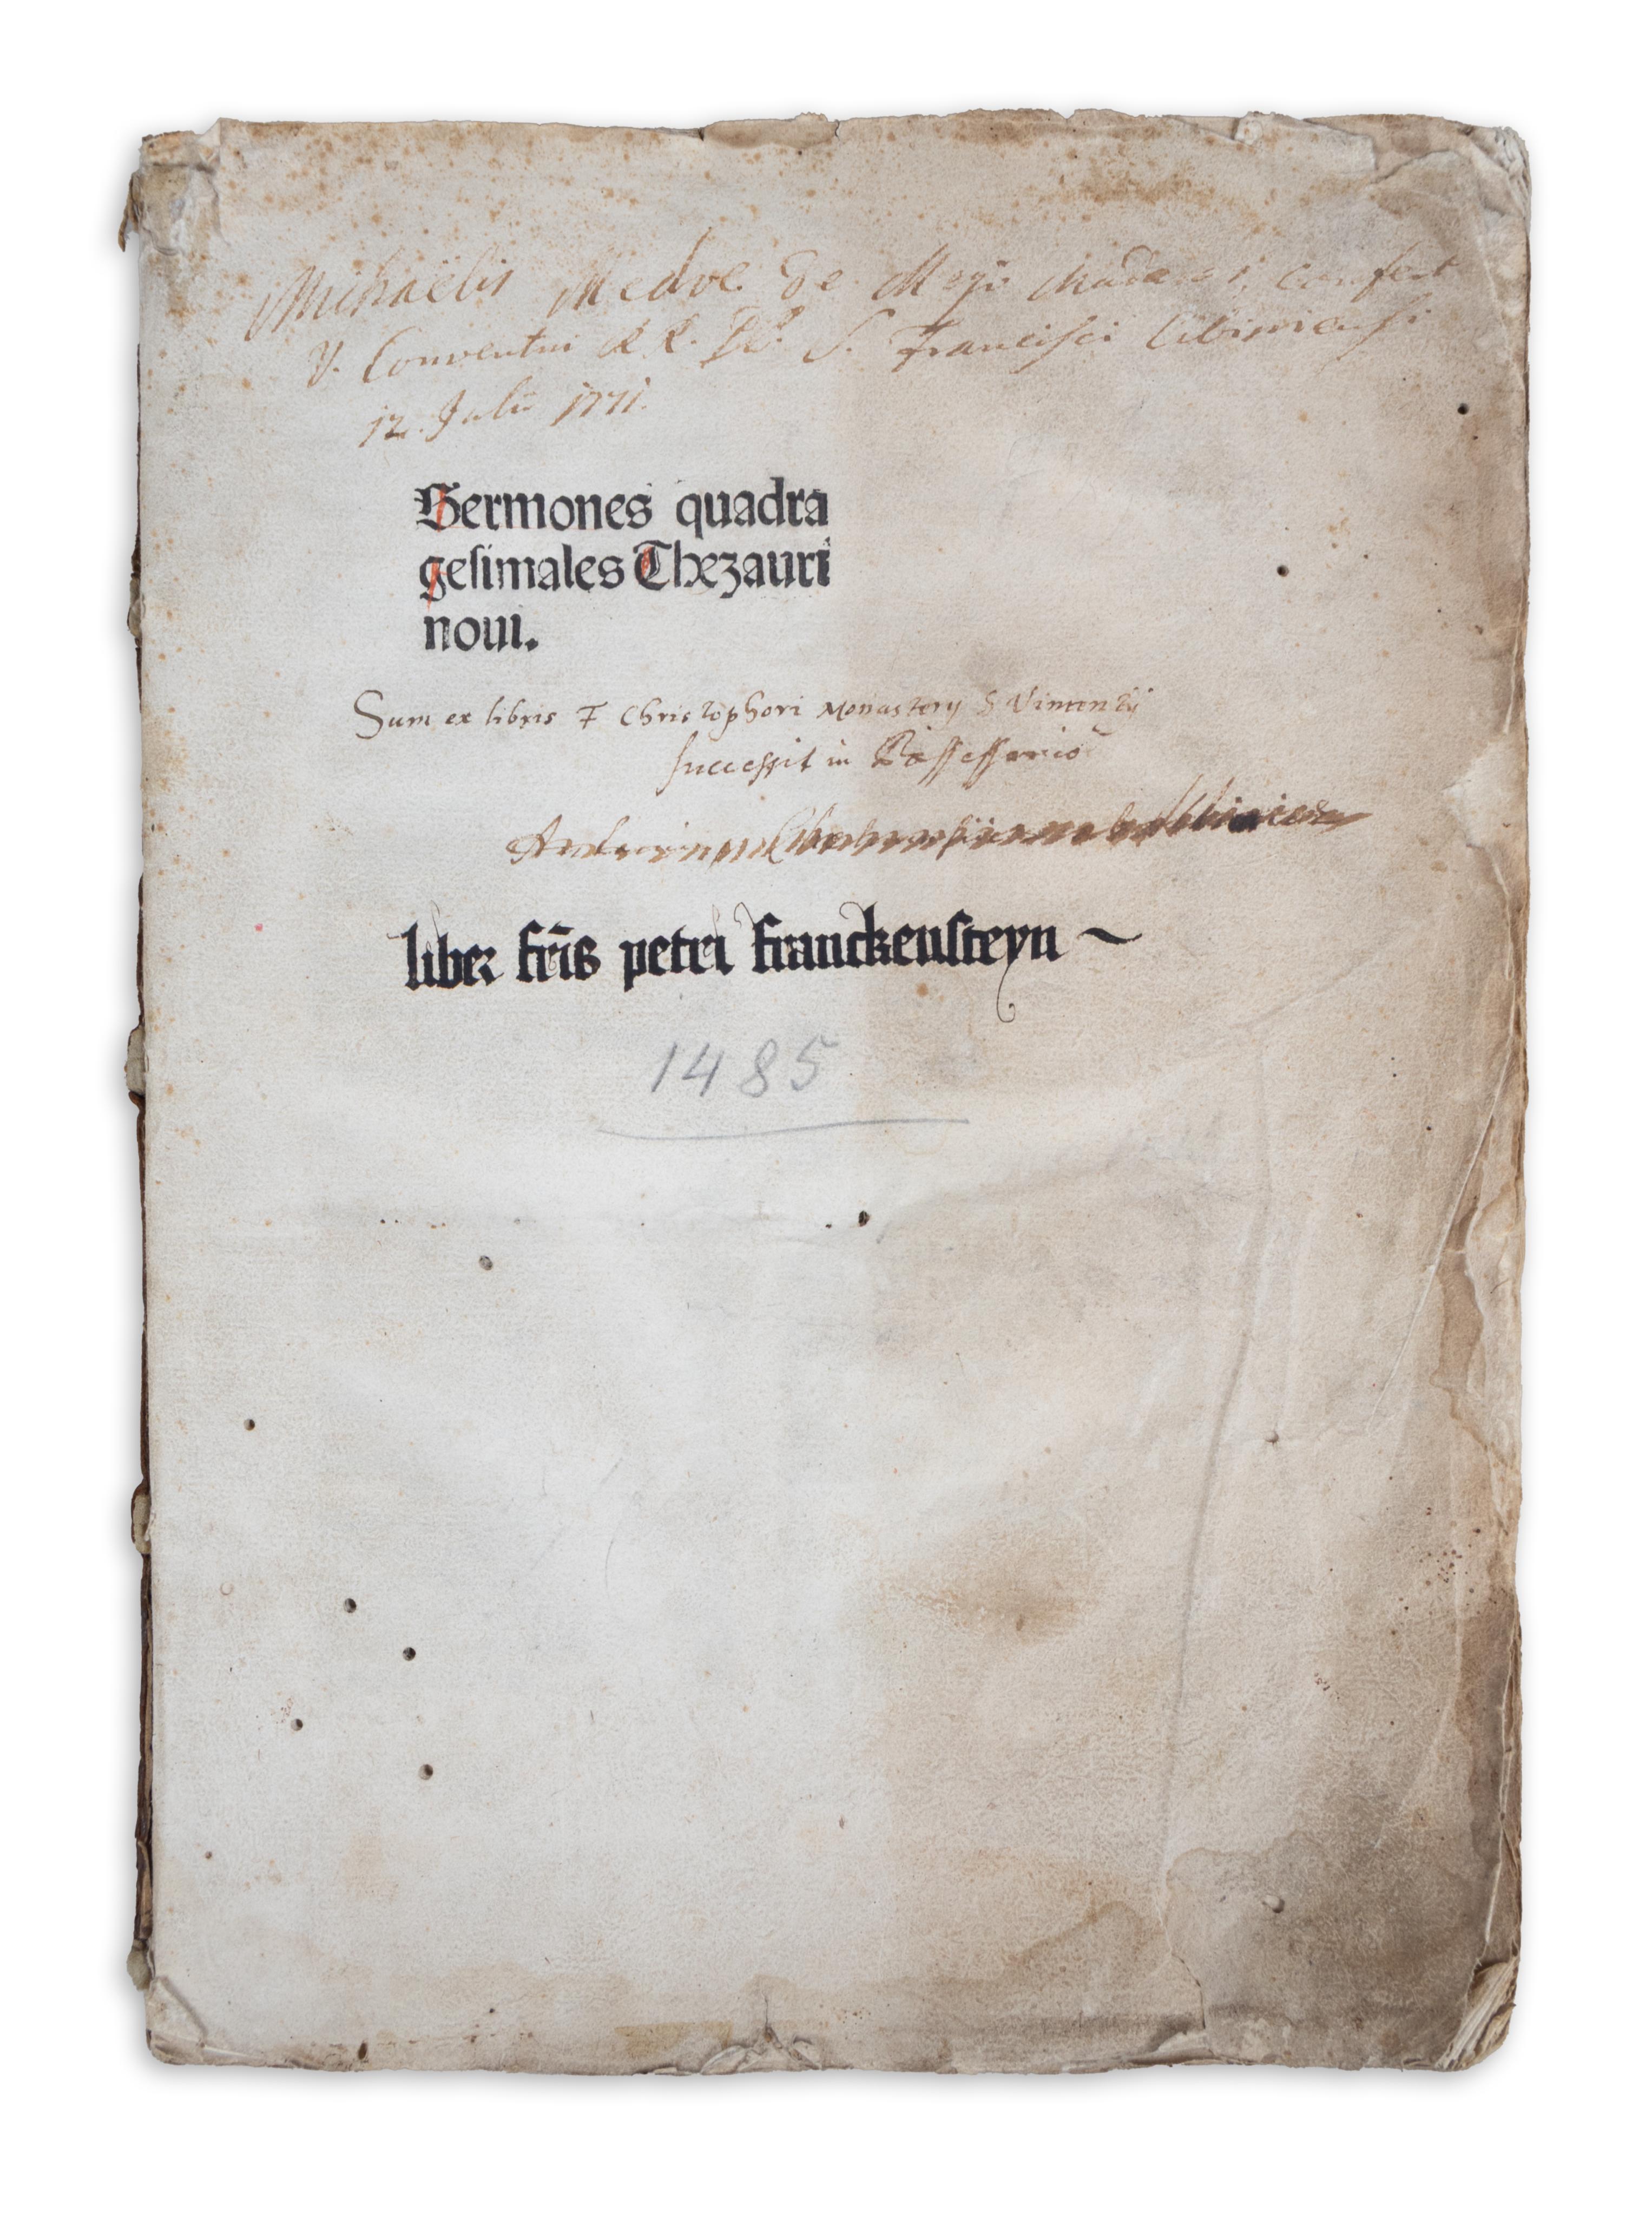 Michaëlis Medve de Mezö Madaras, confert
V. Conventui R. R. PP. S. Francisci Cibiniensi
12. Julii 1771.
Sermones quadra
gesimales Thezauri
noui.
Sum ex libris F Christophori Monastery S Vincentii
successit in Possessorio
liber fr̄is petri franckensteyn ~
1485